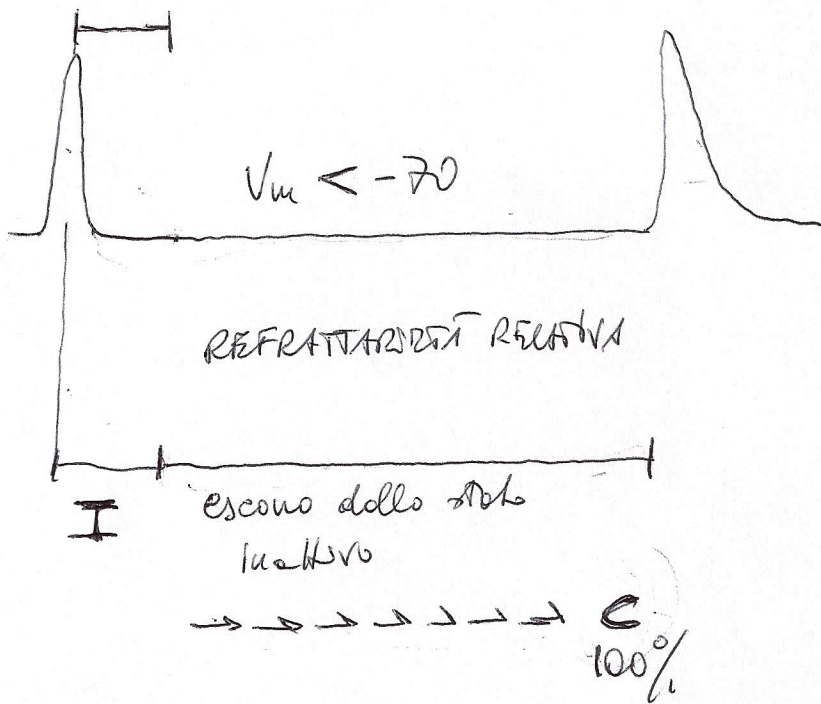 Vm < -70
REFRATTARIETÀ RELATIVA
I
escono dallo stato
inattivo
→ → → → → → → C
100%